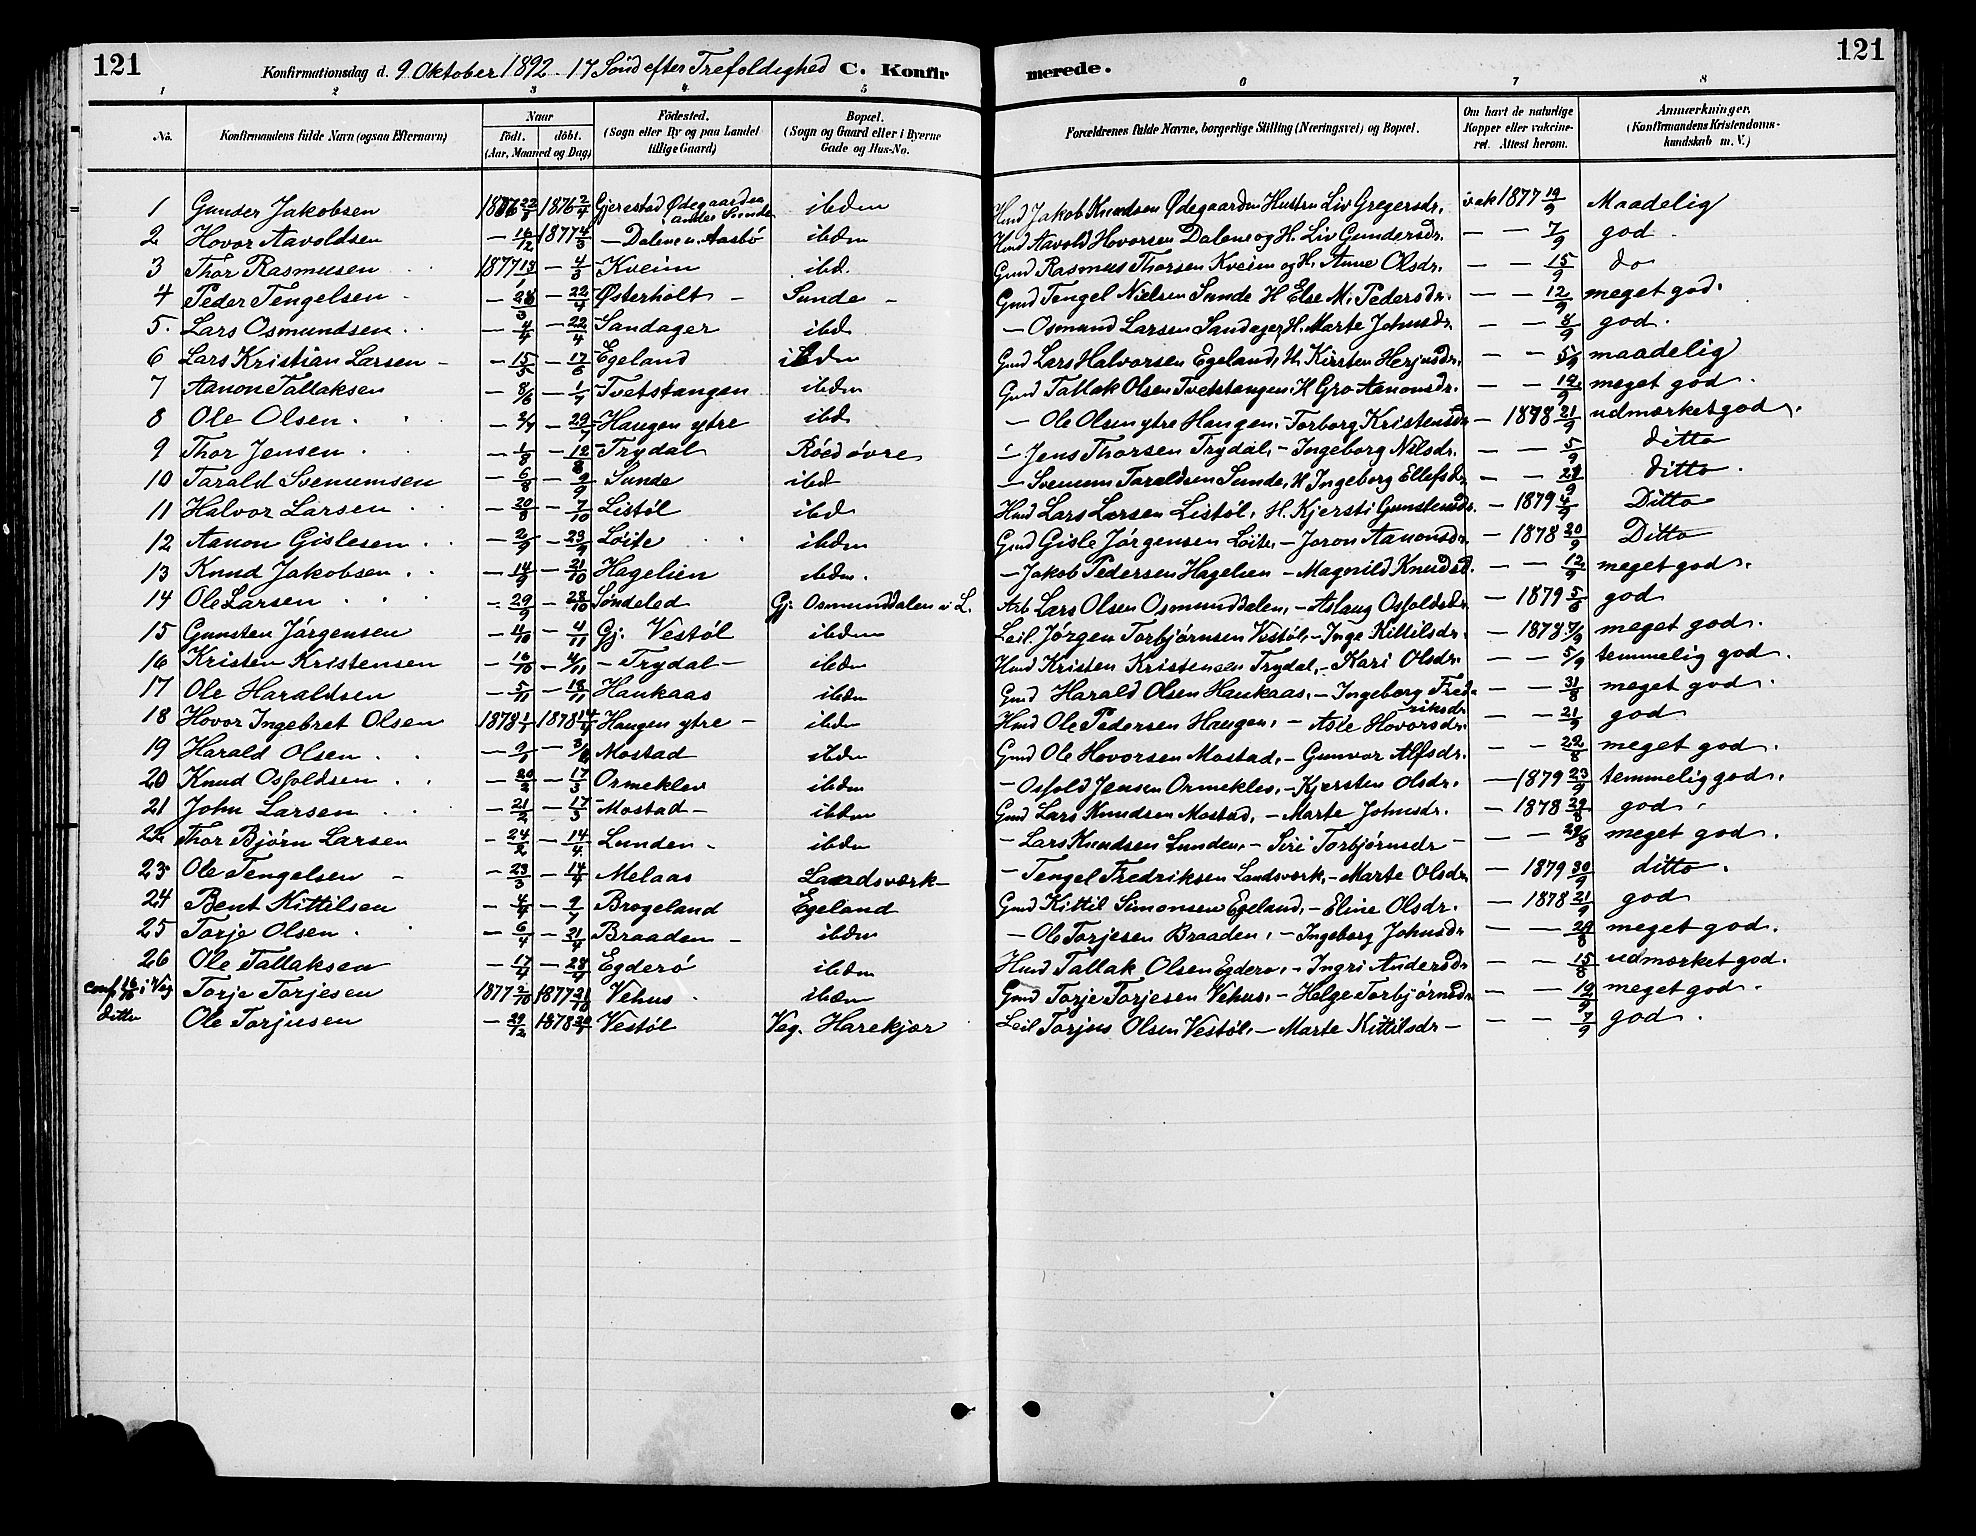 121 Konfirmationsdag d. 9. Oktober 1892. 17 Sönd efter Trefoldighed C. Konfirmerede. 121
1 2 3 4 5 6 7 8
No. Konfirmandens fulde Navn (ogsaa Efternavn) Naar födt. döbt. (Aar, Maaned og Dag) Födested. (Sogn eller By og paa Landet tillige Gaard) Bopæl. (Sogn og Gaard eller i Byerne Gade og Hus-No. Forældrenes fulde Navne, borgerlige Stilling (Næringsvei) og Bopæl. Om havt de naturlige Kopper eller vakcineret. Attest herom. Anmærkninger. (Konfirmandens Kristendomskundskab m. V.)
1 Gunder Jakobsen 1876 22/2 1876 2/4 Gjerestad Ødegaarden under Sunde ibdm Hmd Jakob Knudsen Ødegaarden Hustru Liv Gregersdr. vak 1877 19/9 Maadelig
2 Hovor Aavoldsen – 16/12 1877 4/3 – Dalene u. Aasbö ibdm Hmd Aavold Hovorsen Dalene og H. Liv Gundersdr. – – 7/9 god
3 Thor Rasmusen 1877 13/1 – 4/3 – Kveim ibd. Gmd Rasmus Thorsen Kveim og H. Anne Olsdr. – – 15/9 do
4 Peder Tengelsen – 28/3 – 22/4 – Østerholt – Sunde – Gmd Tengel Nielsen Sunde H Else M. Pedersdr. – – 12/9 meget god.
5. Lars Osmundsen – 4/4 – 22/4 – Sandager ibd – Osmund Larsen Sandager, H. Marte Johnsdr. – – 8/9 god.
6 Lars Kristian Larsen – – 15/5 – 17/6 – Egeland ibdm Gmd Lars Halvorsen Egeland, H. Kirsten Herjusdr. – – 5/9 maadelig
7 Aanon Tallaksen – 8/6 – 1/7 – Tvetstangen ibdm Gmd Tallak Olsen Tvetstangen H Gro Aanonsdr. – – 12/9 meget god.
8 Ole Olsen – 2/7 – 29/7 – Haugen ytre ibd – Ole Olsen ytre Haugen, – Torborg Kristensdr – 1878 21/9 udmærket god.
9 Thor Jensen – 1/8 – 12/8 – Trydal Röed övre – Jens Thorsen Trydal, – Ingeborg Nilsdr. – – 5/9 ditto
10 Tarald Svenumsen – 6/8 – 9/9 – Sunde ibd – Svenum Taraldsen Sunde, H Ingeborg Ellefsdr – – 21/9 ditto.
11 Halvor Larsen – 20/8 – 7/10 – Listöl ibd Hmd Lars Larsen Listöl, H. Kjersti Gunstensdr. – 1879 4/9 Ditto
12 Aanon Gislesen – 2/9 – 23/9 – Löite ibdm Gmd Gisle Jörgensen Löite, – Joron Aanonsdr. – 1878 30/9 Ditto
13 Knud Jakobsen – 14/9 – 21/10 – Hagelien ibdm. – Jakob Pedersen Hagelien – Magnild Knudsd. – – 12/9 meget god.
14 Ole Larsen – 29/9 – 28/10 – Söndeled Gj. Osmunddalen i L. Arb Lars Olsen Osmunddalen, – Aslaug Osfoldsdr – 1879 5/8 god
15 Gunsten Jörgensen – 11/10 – 4/11 Gj. Vestöl ibdm Leil. Jörgen Torbjörnsen Vestöl, – Inge Kittilsdr. – 1878 7/9 meget god.
16 Kristen Kristensen – 16/10 – 4/11 – Trydal – ibdm Hmd Kristen Kristensen Trydal, – Kari Olsdr. – – 5/9 temmelig god.
17 Ole Haraldsen – 5/11 – 18/11 – Haukaas ibdm Gmd Harald Olsen Haukaas, – Ingeborg Fredriksdr – – 31/8 meget god.
18 Hovor Ingebret Olsen 1878 1/1 1878 14/4 – Haugen ytre – ibdm Hmd Ole Pedersen Haugen, – Asle Hovorsdr. – – 21/9 god
19 Harald Olsen – 9/1 – Mostad ibdm Gmd Ole Hovorsen Mostad, – Gunvor Alfsdr. – – 22/8 meget god.
20 Knud Osfoldsen – 20/2 – 17/3 – Ormeklev ibdm – Osfold Jensen Ormeklev, – Kjersten Olsdr. – 1879 23/9 temmelig god.
21 John Larsen – 21/2 – 17/3 – Mostad – ibdm Gmd Lars Knudsen Mostad, – Marte Johnsdr. – 1878 29/8 god.
22 Thor Bjørn Larsen – 24/2 – 14/4 – Lunden – ibdm – Lars Knudsen Lunden, – Siri Torbjörnsdr – – – 29/8 meget god.
23 Ole Tengelsen – – 23/3 – 14/4 – Melaas Landsværk – – Tengel Fredriksen Landsværk, – Marte Olsdr. – 1879 30/9 ditto.
24 Bent Kittilsen – 4/4 – Brogeland Egeland Gmd Kittil Simonsen Egeland, – Eline Olsdr. – 1878 21/9 god
25 Torje Olsen – 6/4 – 21/4 – Braaden – ibdm – Ole Torjesen Braaden, – Ingeborg Johnsdr – – 29/8 meget god.
26 Ole Tallaksen – 17/4 – 28/4 – Egderö ibdm Hmd Tallak Olsen Egderö, – Ingri Andersdr – – 15/8 udmærket god.
conf 16/10 i Veg Torje Torjesen 1877 2/10 1877 21/10 – Vehus ibdm Gmd Torje Torjesen Vehus, – Helge Torbjörnsdr – – 19/9 meget god.
ditto Ole Torjusen – 29/12 1878 – Vestöl Veg. Harekjær Leil Torjus Olsen Vestöl, – Marte Kittilsdr – – – 7/9 god.